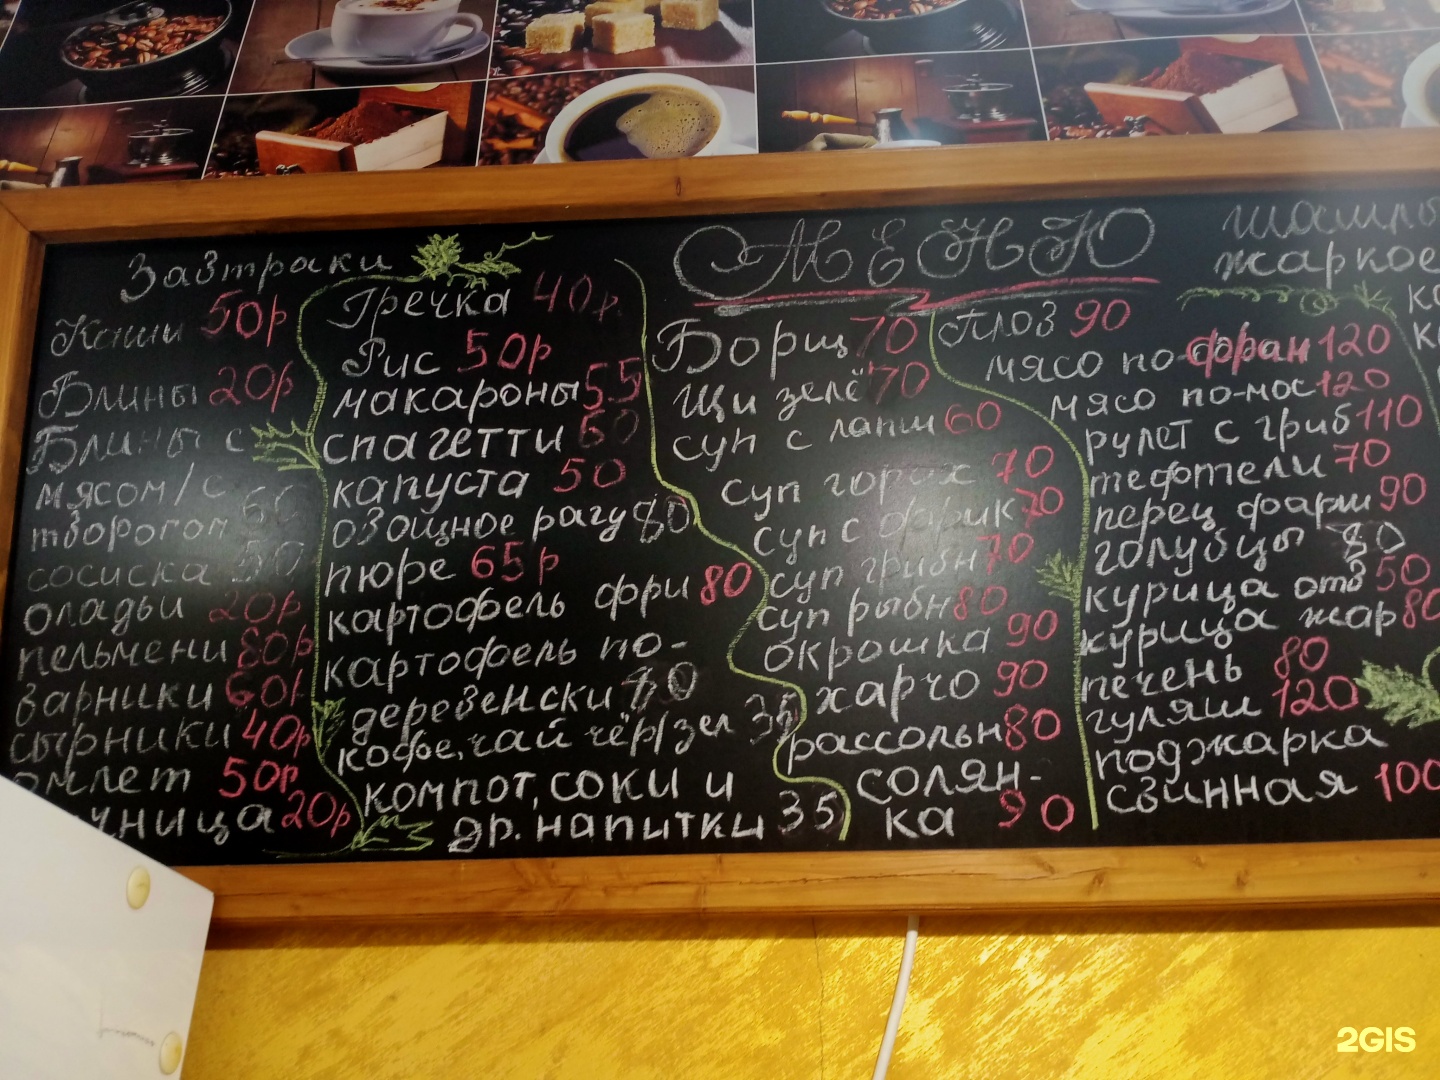 МЕНЮ
Завтраки
Каши 50р
Блины 20р
Блины с
мясом/с
творогом 60
сосиска 50
оладьи 20р
пельмени 80р
вареники 60р
сырники 40р
омлет 50р
чница 20р
Гречка 40р.
Рис 50р
макароны 55
спагетти 60
капуста 50
овощное рагу 80
пюре 65р
картофель фри 80
картофель по-
деревенски 80
кофе, чай чёр/зел 35
компот, соки и
др. напитки 35
Борщ 70
Щи зелё 70
суп с лапш 60
суп горох 70
суп с фрик 70
суп грибн 70
суп рыбн 80
окрошка 90
харчо 90
рассольн 80
солян-
ка 90
Плов 90
мясо по-фран 120
мясо по-мос 120
рулет с гриб 110
тефтели 70
перец фарш 90
голубцы 80
курица отв 50
курица жар 80
печень 80
гуляш 120
поджарка
свинная 100
шашлы
жаркое
2GIS